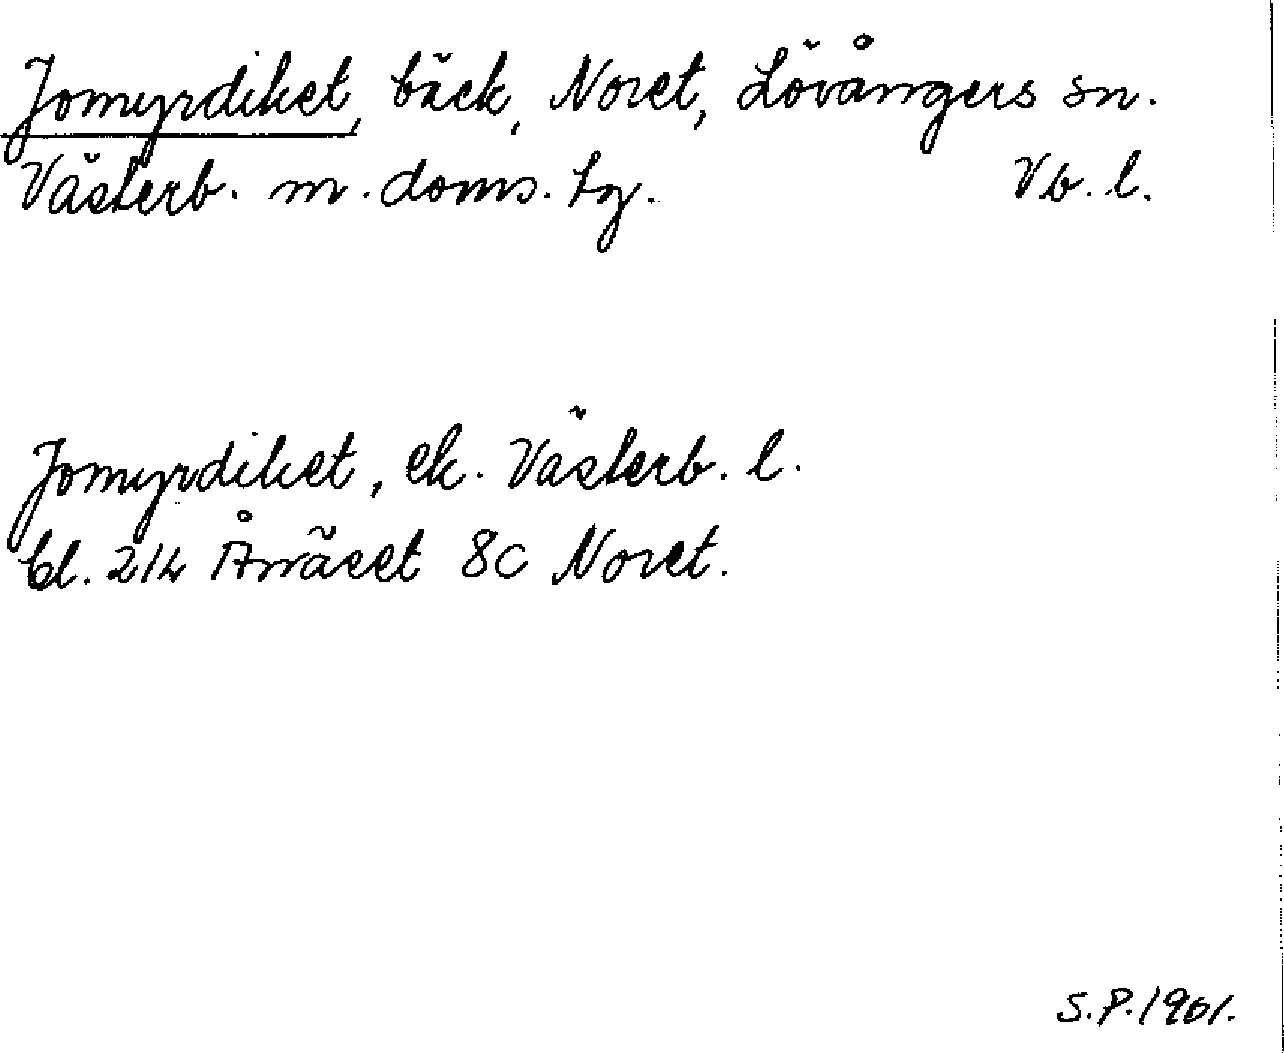 Jomyrdiket, bäck, Noret, Lövångers sn.
Västerb. m. doms. tg. Vb. l.
Jomyrdiket, ek. Västerb. l.
bl. 214 Ånäset 8c Noret.
S.P. 1961.